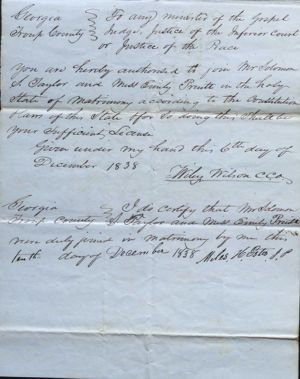 Georgia To any minister of the Gospel
Troup County Judge, Justice of the Inferior Court
or Justice of the Peace
You are hereby authorised to join Mr Solomon
S. Taylor and Miss Emily Pruitt in the holy
State of Matrimony according to the Constitution
& laws of this State & for So doing this Shall be
your Sufficient License
Given under my hand this 6th day of
December 1838
Wiley Wilson CCO
Georgia I do certify that Mr Solomon
Troup County S Taylor and Miss Emily Pruitt
were duly joind in matrimony by me this
tenth day of December 1838 Miles H. Estes J.P